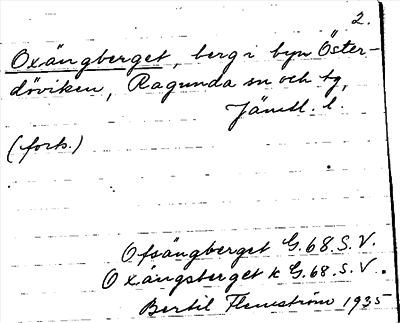 2.
Oxängberget, berg i byn Öster-
döviken, Ragunda sn och tg,
Jämtl. l.
(forts.)
Ofsängberget G.68.S.V.
Oxängsberget k G.68.S.V.
Bertil Flemström 1935